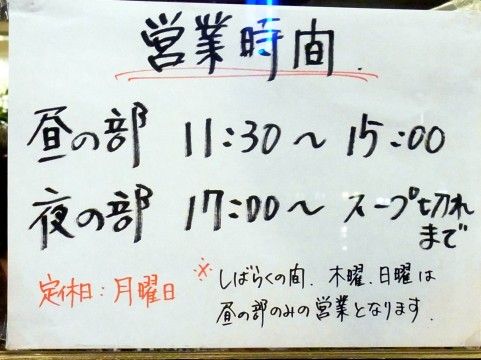 営業時間.
昼の部 11:30〜15:00
夜の部 17:00〜スープ切れ
まで
定休日:月曜日
※しばらくの間、木曜、日曜は
昼の部のみの営業となります.